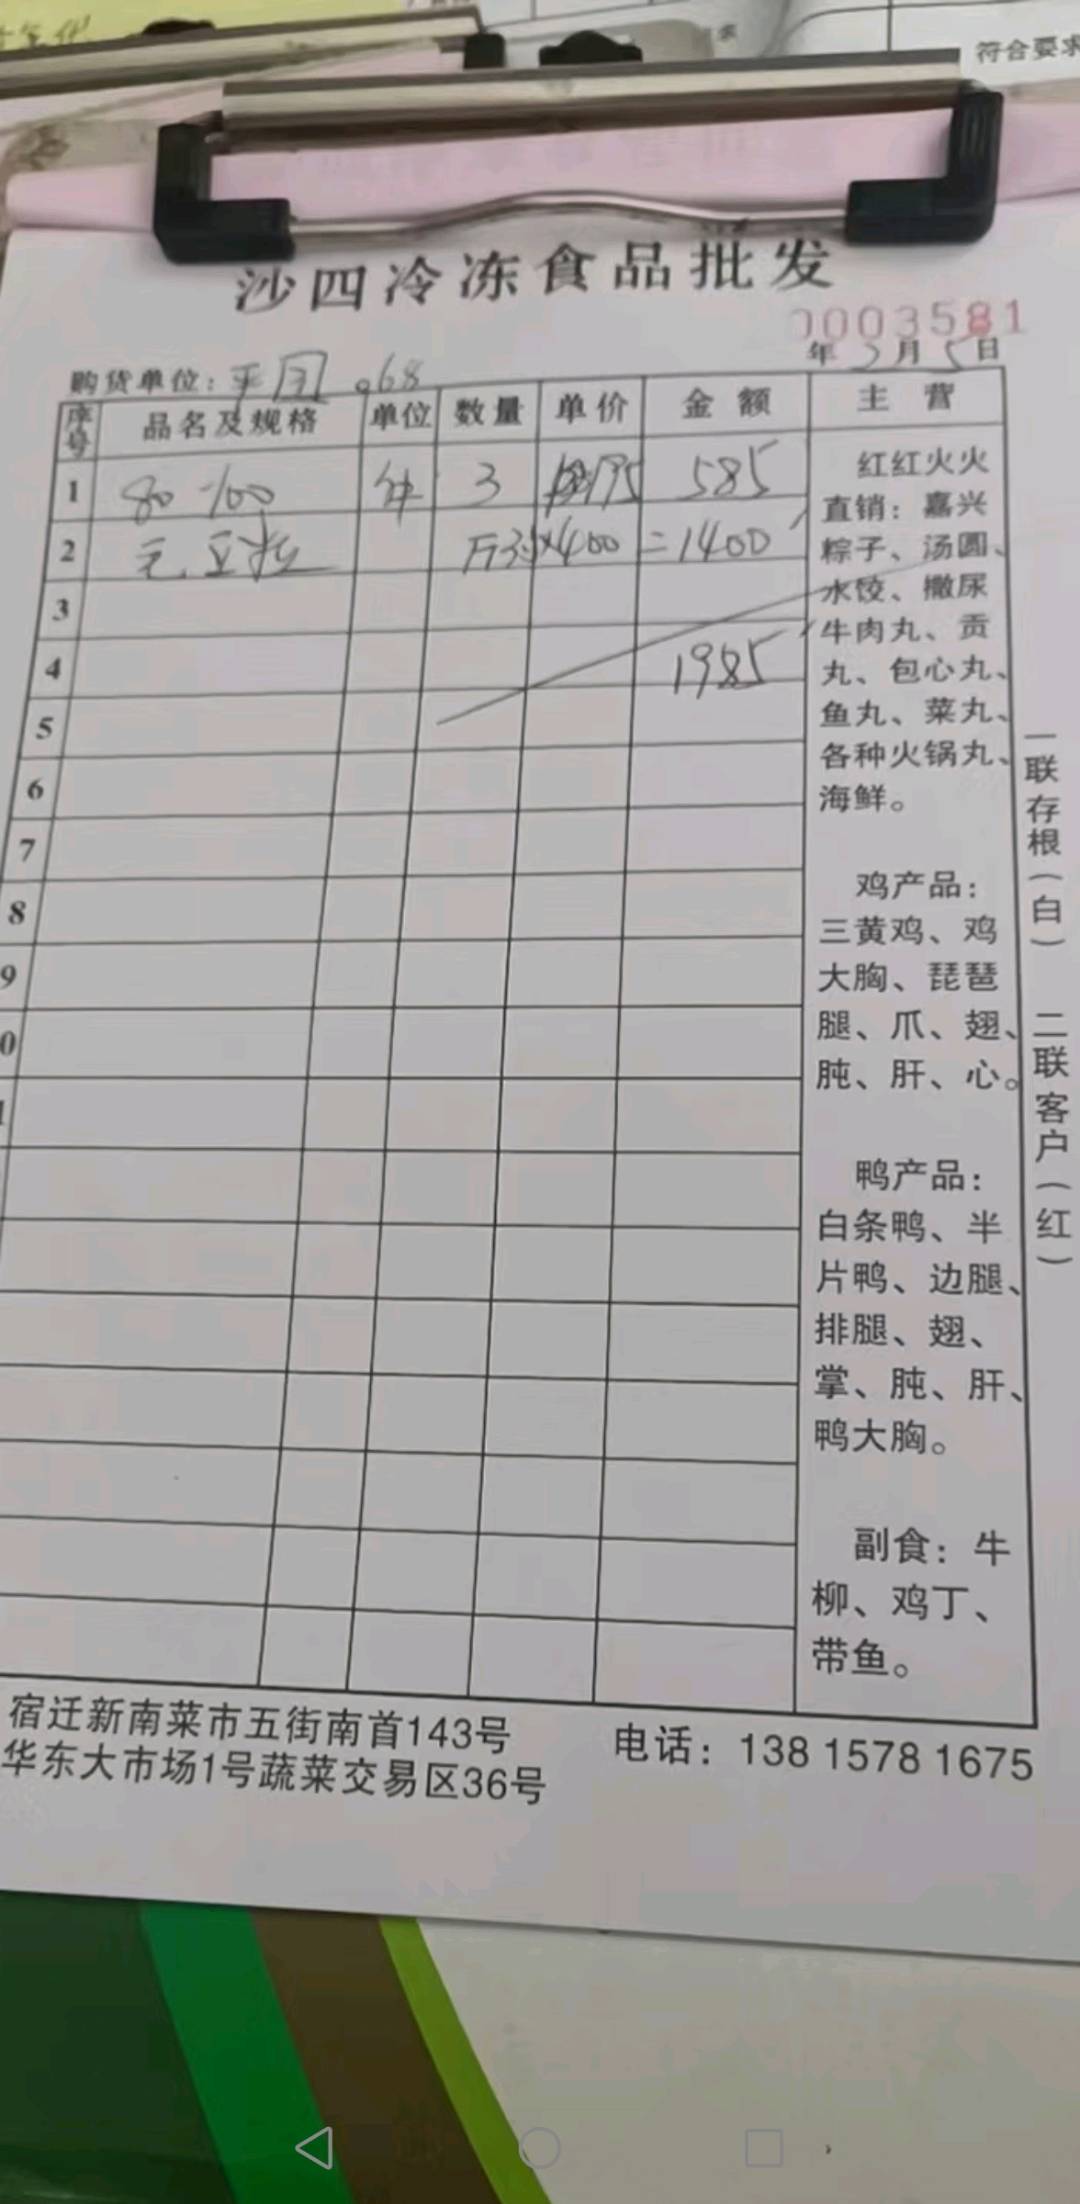 符合要求
沙四冷冻食品批发
0003581
年 3月5日
购货单位：
序号 品名及规格 单位 数量 单价 金额 主营
1 80-100 件 3 195 585
2 毛豆粒 ×400 =1400
3
4 1985
5
6
7
8
9
0
红红火火
直销：嘉兴
粽子、汤圆、
水饺、撒尿
牛肉丸、贡
丸、包心丸、
鱼丸、菜丸、
各种火锅丸、
海鲜。
鸡产品：
三黄鸡、鸡
大胸、琵琶
腿、爪、翅、
肫、肝、心。
鸭产品：
白条鸭、半
片鸭、边腿、
排腿、翅、
掌、肫、肝、
鸭大胸。
副食：牛
柳、鸡丁、
带鱼。
一联存根（白） 二联客户（红）
宿迁新南菜市五街南首143号
华东大市场1号蔬菜交易区36号
电话：138 1578 1675